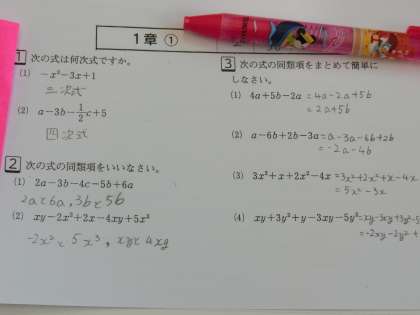 1章 ①
1 次の式は何次式ですか。
(1) －x²－3x＋1
二次式
(2) a－3b－1/2c＋5
四次式
2 次の式の同類項をいいなさい。
(1) 2a－3b－4c－5b＋6a
2aと6a, 3bと5b
(2) xy－2x²＋2x－4xy＋5x²
-2x²と5x², xyと4xy
3 次の式の同類項をまとめて簡単に
しなさい。
(1) 4a＋5b－2a =4a-2a+5b
=2a+5b
(2) a－6b＋2b－3a =a-3a-6b+2b
=-2a-4b
(3) 3x²＋x＋2x²－4x =3x²+2x²+x-4x
=5x²-3x
(4) xy＋3y²＋y－3xy－5y² =xy-3xy+3y²-5
=-2xy-2y²+